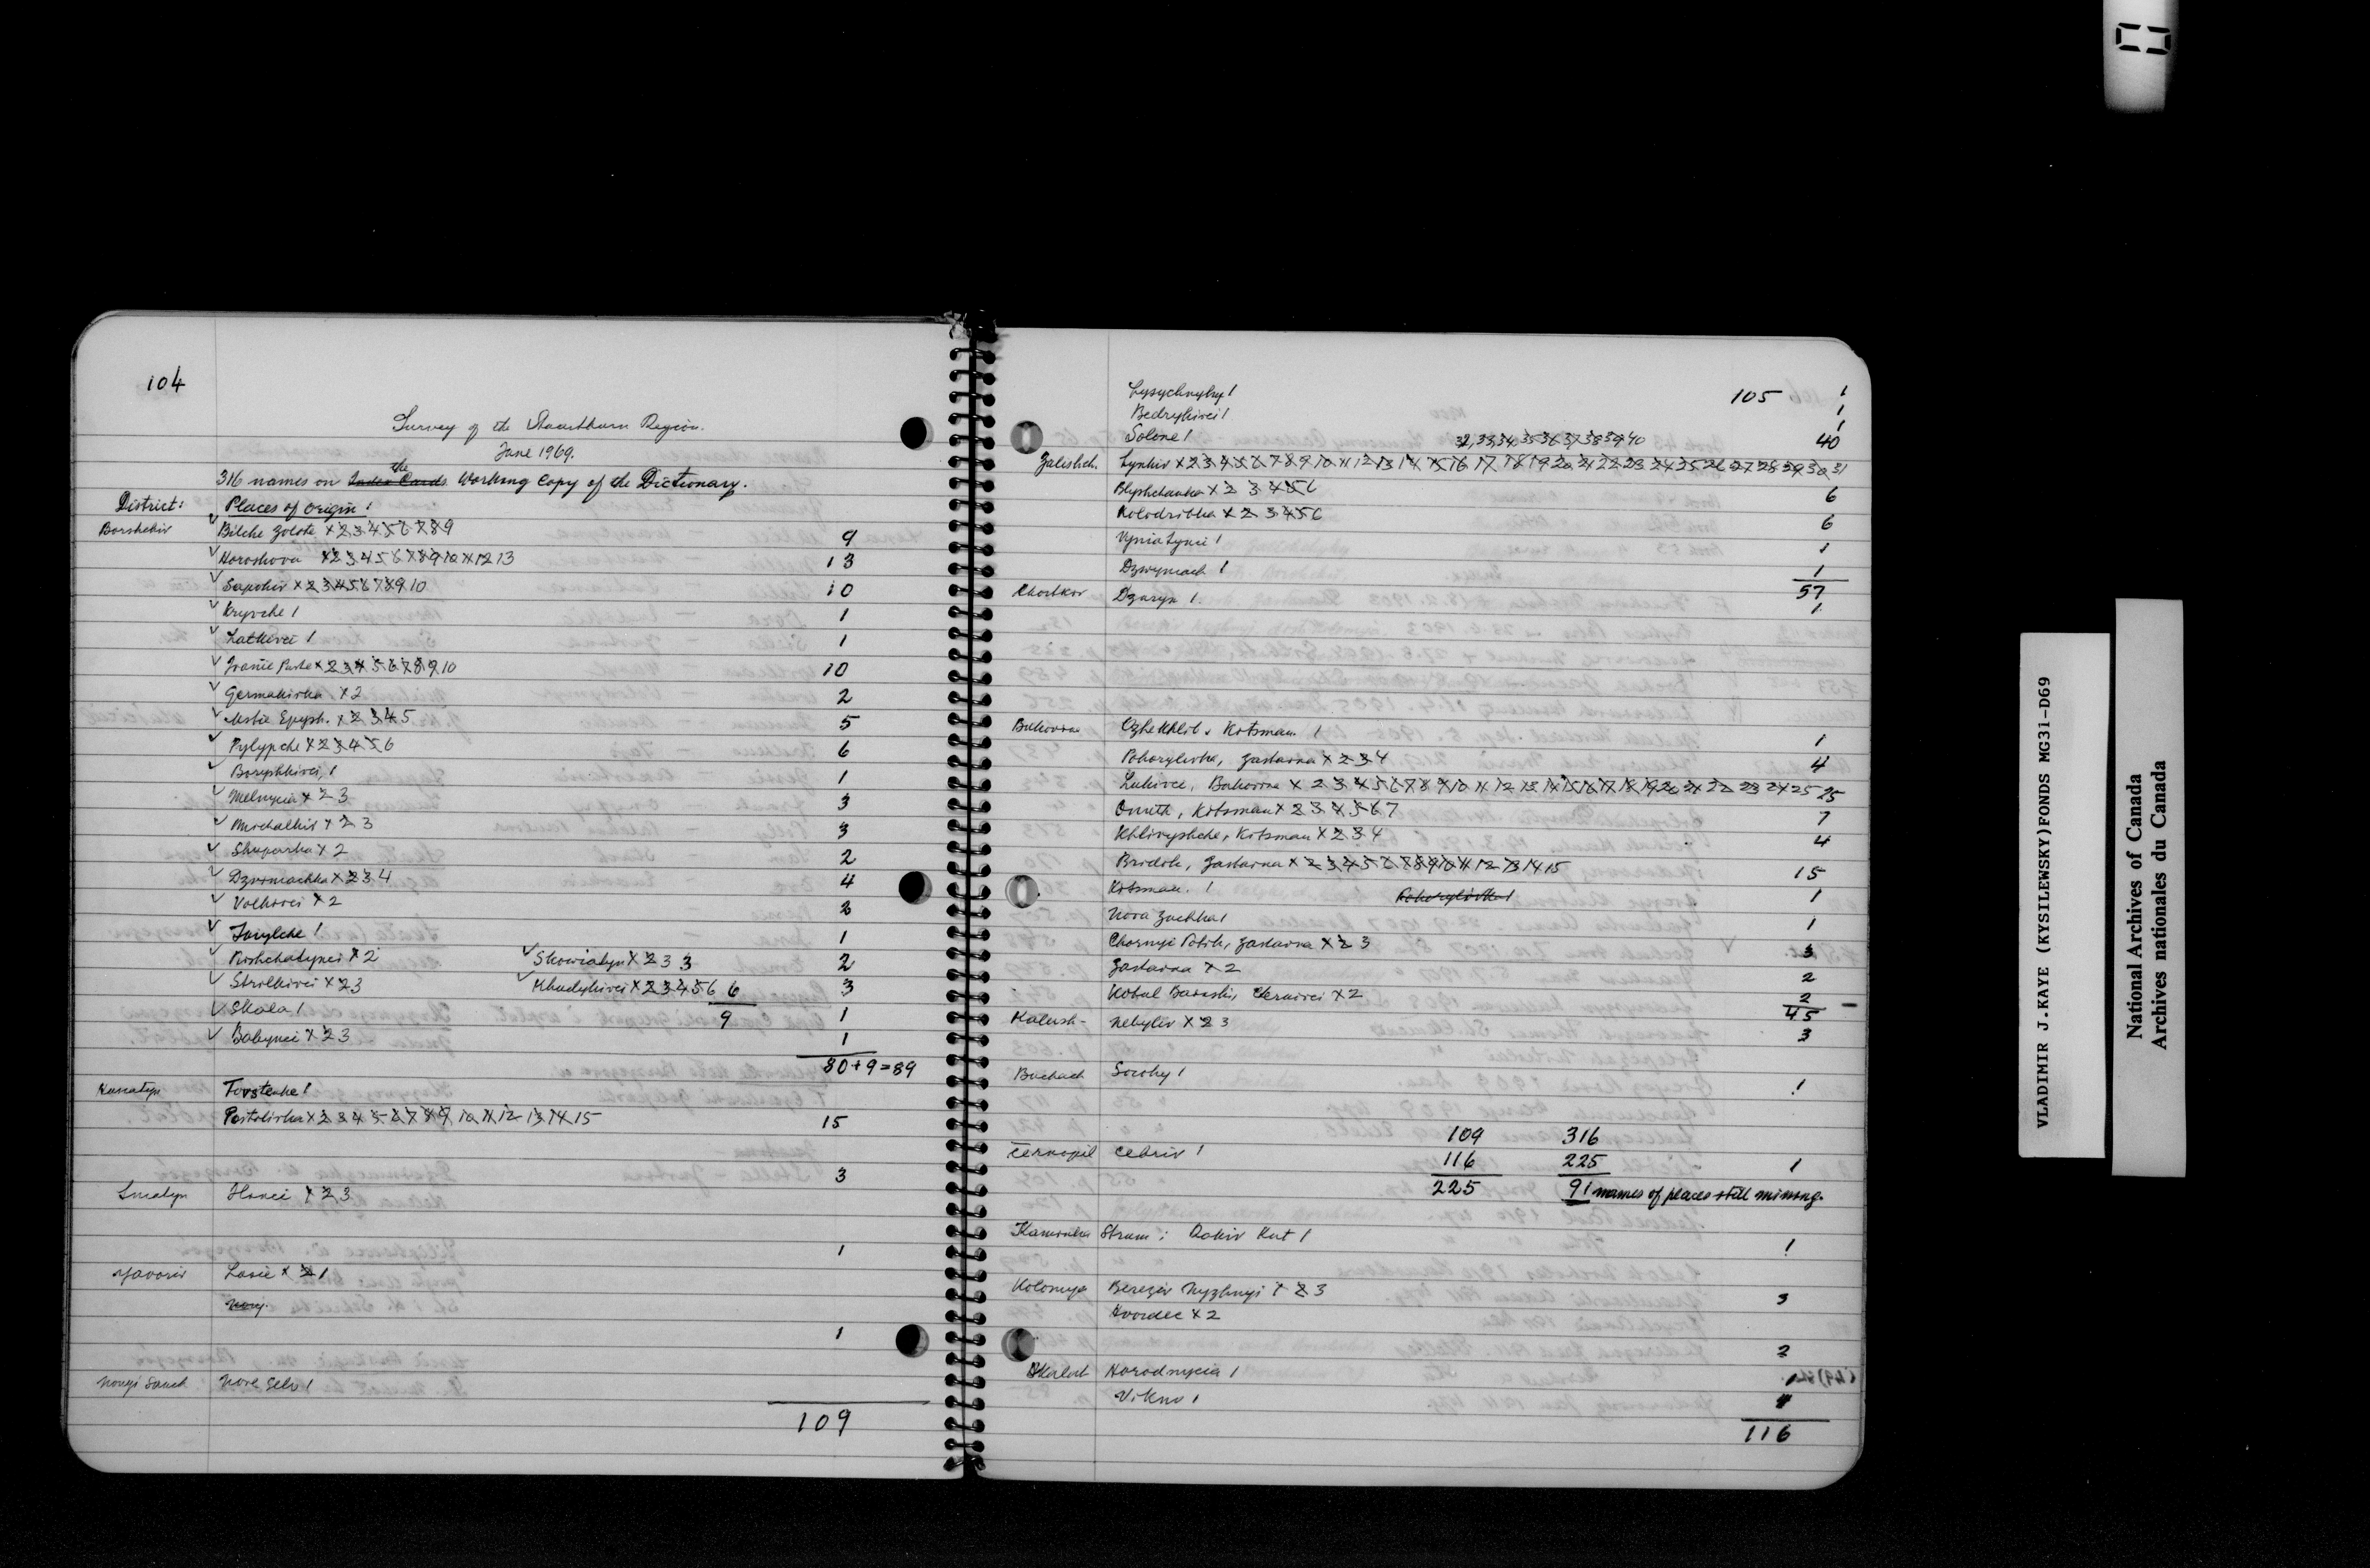 104
Survey of the Stuartburn Region.
June 1969.
316 names on the Index Cards Working Copy of the Dictionary.
District: Places of origin:
Borshchiv Bilche Zolote 1 2 3 4 5 6 7 8 9 9
Horoshova 1 2 3 4 5 6 7 8 9 10 11 12 13 13
Sapohiv 1 2 3 4 5 6 7 8 9 10 10
Kryvche 1 1
Latkivci 1 1
Ivanie Puste 1 2 3 4 5 6 7 8 9 10 10
Germakivka 1 2 2
Ustie Epysh. 1 2 3 4 5 5
Pylypche 1 2 3 4 5 6 6
Boryshkivci, 1 1
Melnycia 1 2 3 3
Michalkiv 1 2 3 3
Shuparka 1 2 2
Dzviniachka 1 2 3 4 4
Volkivci 1 2 2
Iurylche 1 1
Pishchatynci 1 2 Skowiatyn 1 2 3 3 2
Strilkivci 1 2 3 Khudykivci 1 2 3 4 5 6 6 3
Skala 1 9 1
Babynci 1 2 3 1
80 + 9 = 89
Torstenke 1
Postolivka 1 2 3 4 5 6 7 8 9 10 11 12 13 14 15 15
3
Sniatyn 1 2 3
1
Yavoriv Lasie 1 2 1
1
Novyi Sanch Nove Selo 1
109
105
Lysychnyky 1 1
Bedrykivci 1 1
Solone 1 1
32, 33, 34, 35 36 37 38 39 40 40
Zalishch. Synkiv 1 2 3 4 5 6 7 8 9 10 11 12 13 14 15 16 17 18 19 20 21 22 23 24 25 26 27 28 29 30 31
Blyshchanka 1 2 3 4 5 6 6
Kolodribka 1 2 3 4 5 6 6
Vyniatynci 1 1
Dzwyniach 1 1
57
Chortkiv Dzuryn 1. 1
Bukovina Kotsman 1 1
Pohorylivka, Zastavna 1 2 3 4 4
Lukivci, Bukovina 1 2 3 4 5 6 7 8 9 10 11 12 13 14 15 16 17 18 19 20 21 22 23 24 25 25
Onuth, Kotsman 1 2 3 4 5 6 7 7
Khlivyshche, Kotsman 1 2 3 4 4
Bridok, Zastavna 1 2 3 4 5 6 7 8 9 10 11 12 13 14 15 15
Kotsman. 1 Pohorylivka 1 1
Nova Zuchka 1 1
Chornyi Potik, Zastavna 1 2 3 3
Zastavna 1 2 2
Kobul 1 2 2
45
Kalush- Nebyliv 1 2 3 3
Buchach Soroky 1 1
109 316
Ternopil Cebriv 1 116 225 1
225 91 names of places still missing.
Kamionka Strum: Rakiv Kut 1 1
Kolomyja Bereziv Nyzhnyi 1 2 3 3
Hvozdec 1 2
2
Skalat Horodnycia 1 1
Vikno 1
116
VLADIMIR J.KAYE (KYSILEWSKY)FONDS MG31-D69
National Archives of Canada
Archives nationales du Canada